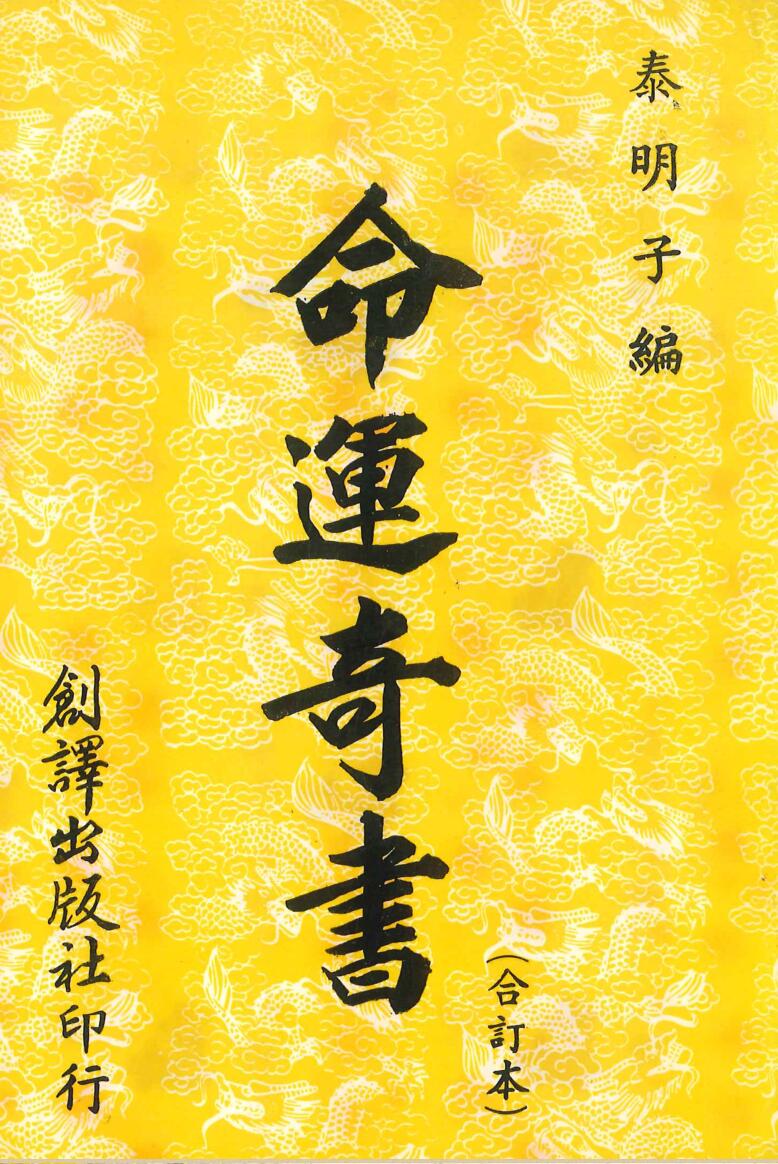 泰明子編
命運奇書
(合訂本)
創譯出版社印行